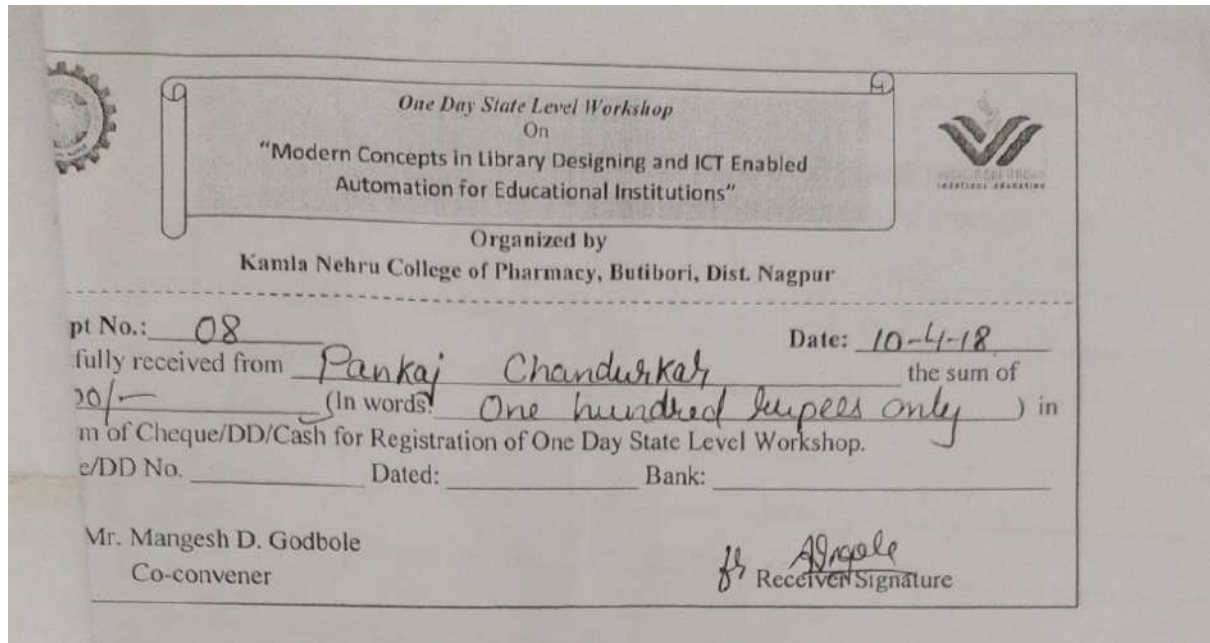 One Day State Level Workshop
On
"Modern Concepts in Library Designing and ICT Enabled
Automation for Educational Institutions"
Organized by
Kamla Nehru College of Pharmacy, Butibori, Dist. Nagpur
pt No.: 08 Date: 10-4-18
fully received from Pankaj Chandurkar the sum of
00/- (In words: One hundred rupees only ) in
m of Cheque/DD/Cash for Registration of One Day State Level Workshop.
e/DD No. Dated: Bank:
Mr. Mangesh D. Godbole
Co-convener
for
Receiver Signature